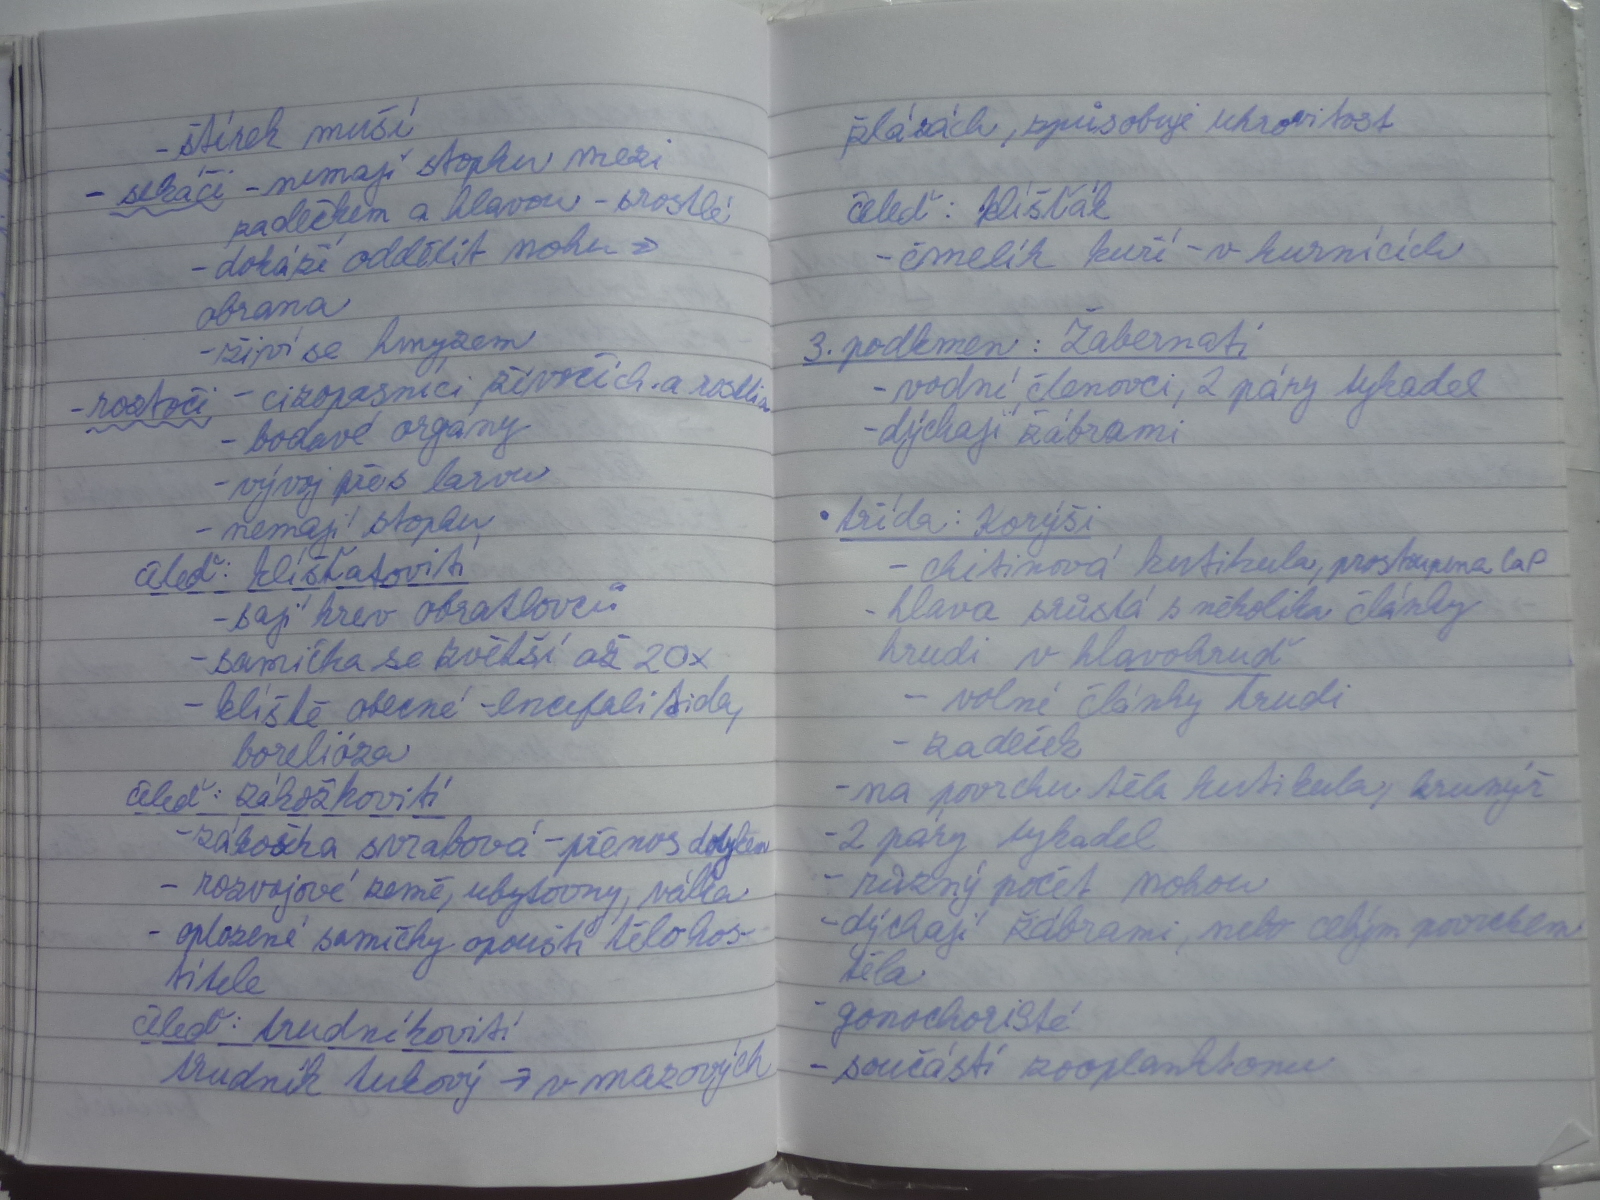 - štírek muší
- sekáči - nemají stopku mezi
zadečkem a hlavou - srostlé
- dokáží oddělit nohu →
obrana
- živí se hmyzem
- roztoči - cizopasníci živočich. a rostlin
- bodavé orgány
- vývoj přes larvu
- nemají stopku
čeleď: klíšťatovití
- sají krev obratlovců
- samička se zvětší až 20x
- klíště obecné - encefalitida,
borelióza
čeleď: zákožkovití
- zákožka svrabová - přenos dotykem
- rozvojové země, ubytovny, válka
- oplozené samičky opouští tělo hos-
titele
čeleď: trudníkovití
trudník tukový → v mazových
žlázách, způsobuje uhrovitost
čeleď: klíšťák
- čmelík kuří - v kurnících
3. podkmen: Žabernatí
- vodní členovci, 2 páry tykadel
- dýchají žábrami
• třída: Korýši
- chitinová kutikula, prostoupena CaP
- hlava srůstá s několika články
hrudi v hlavohruď
- volné články hrudi
- zadeček
- na povrchu těla kutikula, krunýř
- 2 páry tykadel
- různý počet nohou
- dýchají žábrami, nebo celým povrchem
těla
- gonochoristé
- součástí zooplanktonu